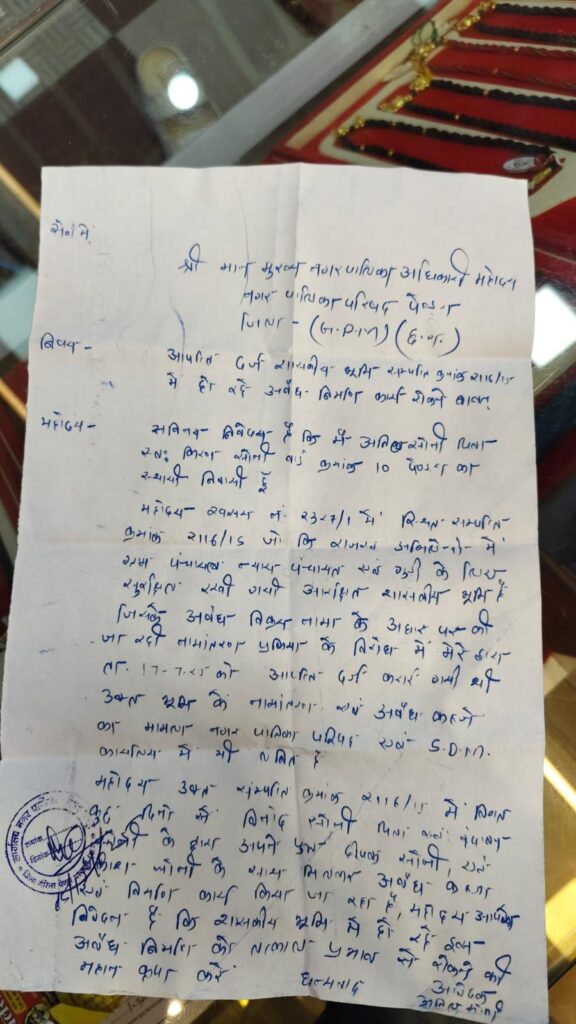 सेवा में,
श्री मान मुख्य नगरपालिका अधिकारी महोदय
नगर पालिका परिषद पेण्ड्रा
जिला - (G.P.M) (छ.ग.)
विषय - आपत्ति दर्ज शासकीय भूमि सम्पत्ति क्रमांक 2116/15
में हो रहे अवैध निर्माण कार्य रोकने बाबत्
महोदय - सविनय निवेदन है कि मैं अनिल सोनी पिता
स्व: सोनी वार्ड क्रमांक 10 पेण्ड्रा का
स्थायी निवासी हूँ
महोदय खसरा नं. 2327/1 में स्थित सम्पत्ति
क्रमांक 2116/15 जो कि राजस्व में
ग्राम पंचायत न्याय पंचायत एवं के लिए
सुरक्षित रखी गयी आरक्षित शासकीय भूमि है
जिसके अवैध विक्रय नामा के आधार पर की
जा रही नामांतरण प्रक्रिया के विरोध में मेरे द्वारा
ता. 17-7-25 को आपत्ति दर्ज कराई गयी थी
उक्त भूमि के नामांतरण एवं अवैध कब्जे
का मामला नगर पालिका परिषद एवं S.D.M.
कार्यालय में भी लंबित है
महोदय उक्त संम्पत्ति क्रमांक 2116/15 में विगत
कुछ दिनों से विनोद सोनी पिता स्व:
सोनी के द्वारा अपने पुत्र दीपक सोनी, एवं
सोनी के साथ मिलकर अवैध कब्जा
एवं निर्माण कार्य किया जा रहा है, महोदय आपसे
निवेदन है कि शासकीय भूमि में हो रहे इस
अवैध निर्माण को तत्काल प्रभाव से रोकने की
महान कृपा करें
धन्यवाद
आवेदक
अनिल सोनी
कार्यालय नगर पालिका
दिनांक